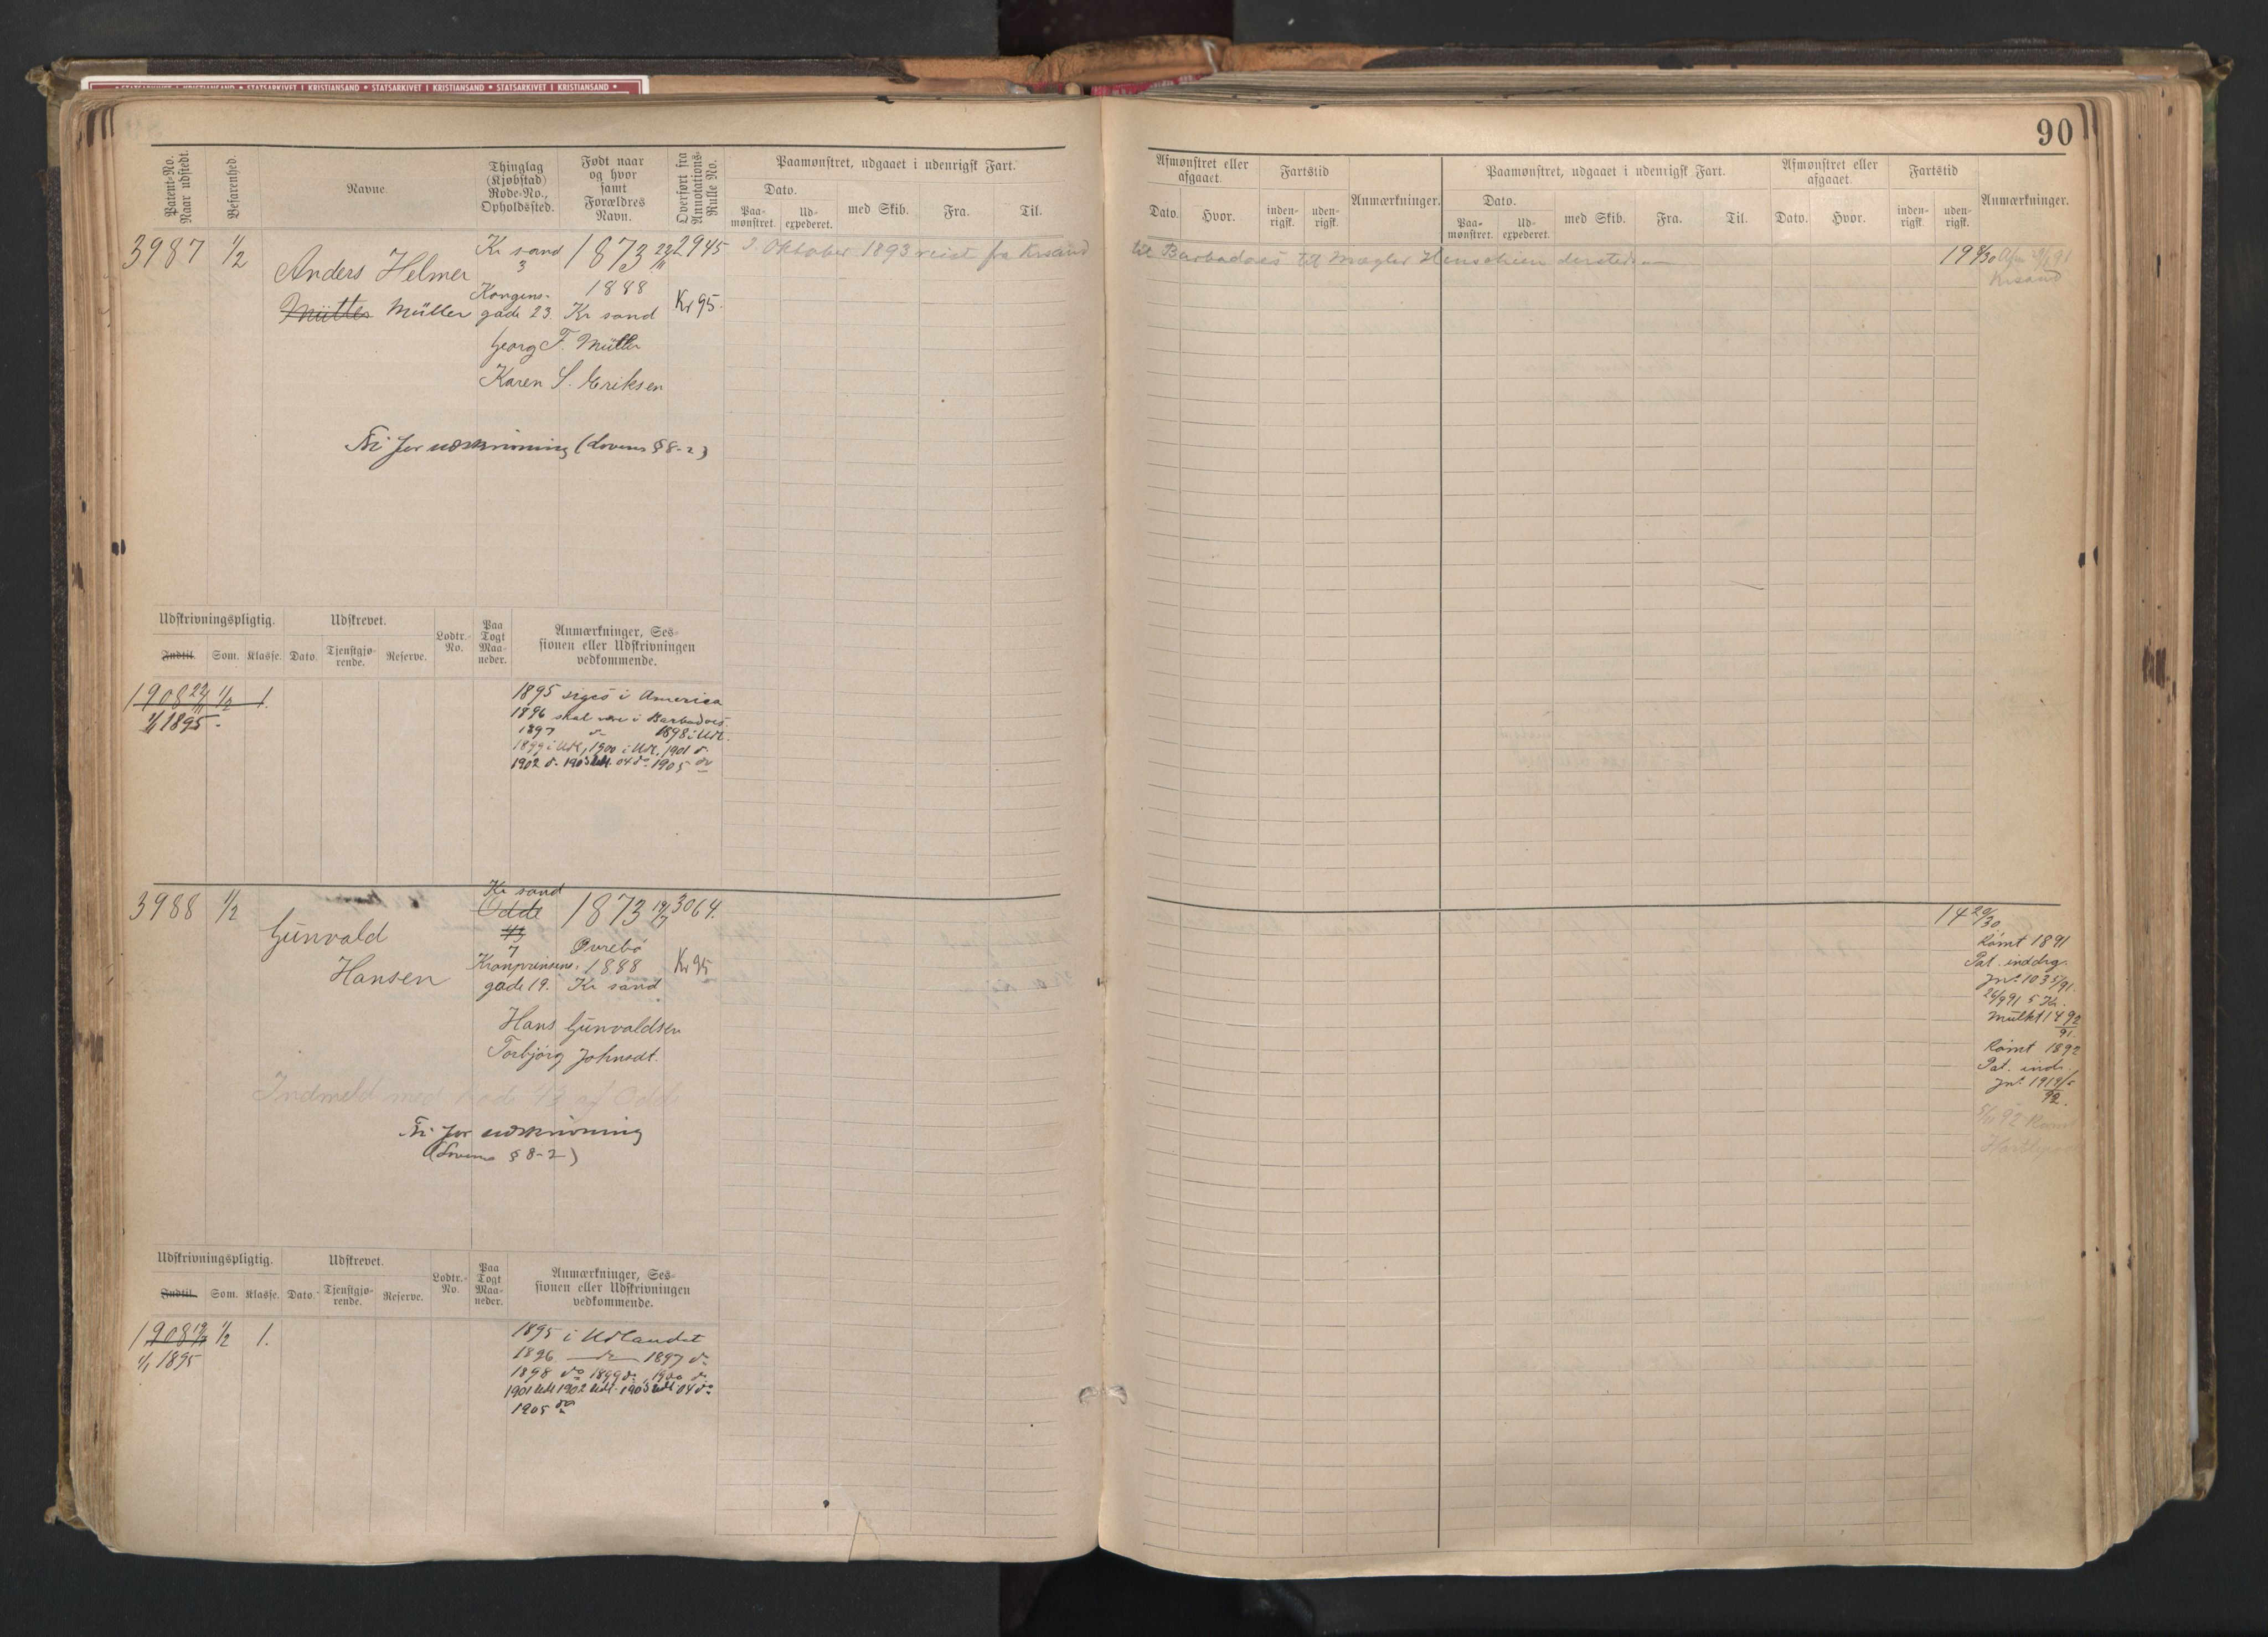 • STATSARKIVET I KRISTIANSAND • STATSARKIVET I KRISTIANSAND • STATSARKIVET I KRISTIANSAND •
90
Patent-No. Naar udstedt.
Befarenhed.
Navne.
Thinglag (Kjøbstad) Rode-No., Opholdssted.
Født naar og hvor samt Forældres Navn.
Overført fra Annotations-Rulle No.
Paamønstret, udgaaet i udenrigsk Fart.
Dato.
Paamønstret.
Udexpederet.
med Skib.
Fra.
Til.
Afmønstret eller afgaaet.
Dato.
Hvor.
Fartstid
indenrigsk.
udenrigsk.
Anmærkninger.
Paamønstret, udgaaet i udenrigsk Fart.
Dato.
Paamønstret.
Udexpederet.
med Skib.
Fra.
Til.
Afmønstret eller afgaaet.
Dato.
Hvor.
Fartstid
indenrigsk.
udenrigsk.
Anmærkninger.
3987 1/2
Anders Helmer
Mütter Müller
Kr sand
3
Kongens-
gade 23.
1873 22/11
1888
Kr sand
2945
Kr 95.
Georg F. Müller
Karen S. Eriksen
Fri for udskrivning (Lovens § 8-2)
I Oktober 1893 reist fra Krsand til Barbadoes til Mægler
19 8/30
Krsand
Udskrivningspligtig.
Udskrevet.
Lodtr.-No.
Paa Togt Maaneder.
Anmærkninger, Sessionen eller Udskrivningen vedkommende.
Indtil.
Som.
Klasse.
Dato.
Tjenstgjørende.
Reserve.
1908 22/11 1/2 1.
1/1 1895.
1895 siges i America
1896 skal være i Barbadoes
1897 do 1898 i Udl.
1899 i Udl, 1900 i Udl, 1901 do
1902 do 1903 Udl. 04 do 1905 do
3988 1/2
Gunvald
Hansen
Kr sand
Odde
43
7
Kronprinsens
gade 19.
1873 19/7
Øvrebø
1888
Kr sand
3064.
Kr 95
Hans Gunvaldsen
Torbjørg Johnsdt.
Indmeld med Rode 43 af Odde
Fri for udskrivning
(Lovens § 8-2)
14 29/30
Rømt 1891
Pat. inddrg.
Jn° 1035/91.
26/9 91 5 Kr.
Mulkt 1492/91.
Rømt 1892
Pat. ind.
92.
Udskrivningspligtig.
Udskrevet.
Lodtr.-No.
Paa Togt Maaneder.
Anmærkninger, Sessionen eller Udskrivningen vedkommende.
Indtil.
Som.
Klasse.
Dato.
Tjenstgjørende.
Reserve.
1908 19/7 1/2 1.
1/1 1895
1895 i Udlandet
1896 do 1897 do
1898 do 1899 do, 1900 do
1901 Udl 1902 Udl. 1903 Udl 04 do
1905 do